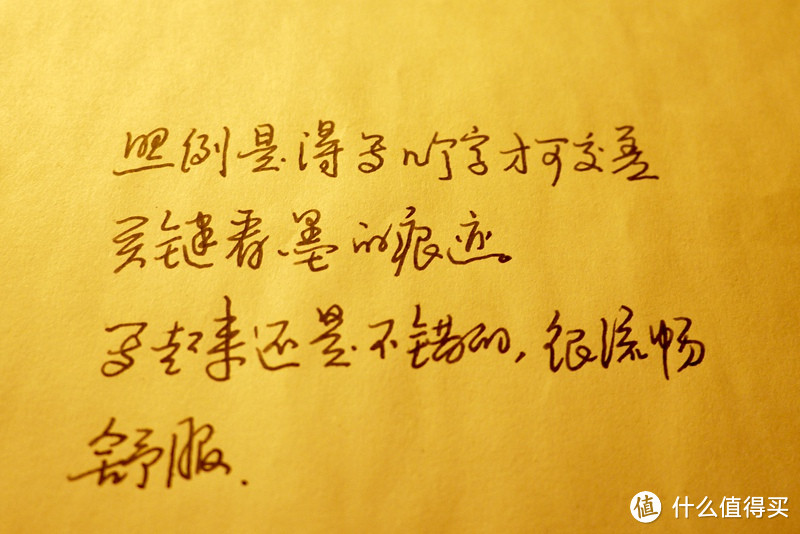 照例是得写几个字才可交差
关键看墨的痕迹。
写起来还是不错的,很流畅
舒服.
值 什么值得买